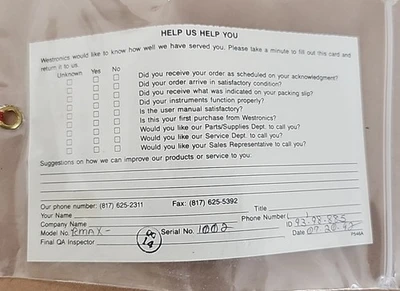 HELP US HELP YOU
Westronics would like to know how well we have served you. Please take a minute to fill out this card and
return it to us.
Unknown Yes No
Did you receive your order as scheduled on your acknowledgment?
Did your order arrive in satisfactory condition?
Did you receive what was indicated on your packing slip?
Did your instruments function properly?
Is the user manual satisfactory?
Is this your first purchase from Westronics?
Would you like our Parts/Supplies Dept. to call you?
Would you like our Service Dept. to call you?
Would you like your Sales Representative to call you?
Suggestions on how we can improve our products or service to you:
Our phone number: (817) 625-2311 Fax: (817) 625-5392
Your Name Title
Company Name Phone Number
Model No. Serial No. 1002 ID
Final QA Inspector Date